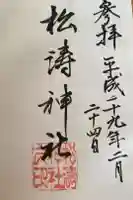 参拝 平成二十九年二月
二十四日
松涛神社